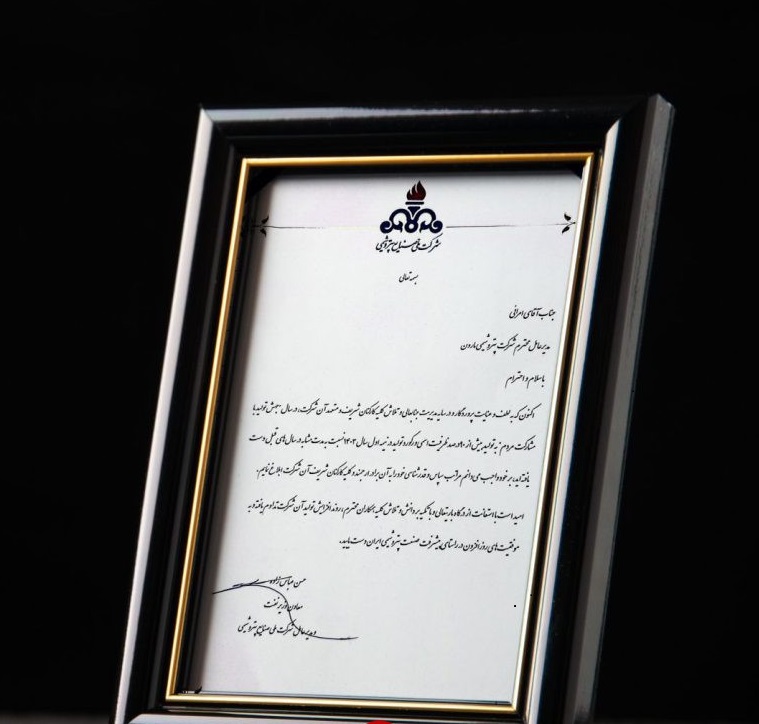 شرکت ملی صنایع پتروشیمی
بسمه تعالی
جناب آقای امرائی
مدیرعامل محترم شرکت پتروشیمی مارون
با سلام و احترام
اکنون که به لطف و عنایت پروردگار و در سایه مدیریت جنابعالی و تلاش کلیه کارکنان شریف و متعهد آن شرکت، در سال جهش تولید با
مشارکت مردم به تولید بیش از ۹۰ درصد ظرفیت اسمی و رکورد تولید در نیمه اول سال ۱۴۰۳ نسبت به مدت مشابه در سال های قبل دست
یافته اید، بر خود واجب می دانم مراتب سپاس و قدرشناسی خود را به آن برادر ارجمند و کلیه کارکنان شریف آن شرکت ابلاغ نمایم.
امید است با استعانت از درگاه باریتعالی و با تکیه بر دانش و تلاش کلیه همکاران محترم، روند افزایش تولید آن شرکت تداوم یافته و به
موفقیت های روزافزون در راستای پیشرفت صنعت پتروشیمی ایران دست یابید.
حسن عباس زاده
معاون وزیر نفت
و مدیرعامل شرکت ملی صنایع پتروشیمی